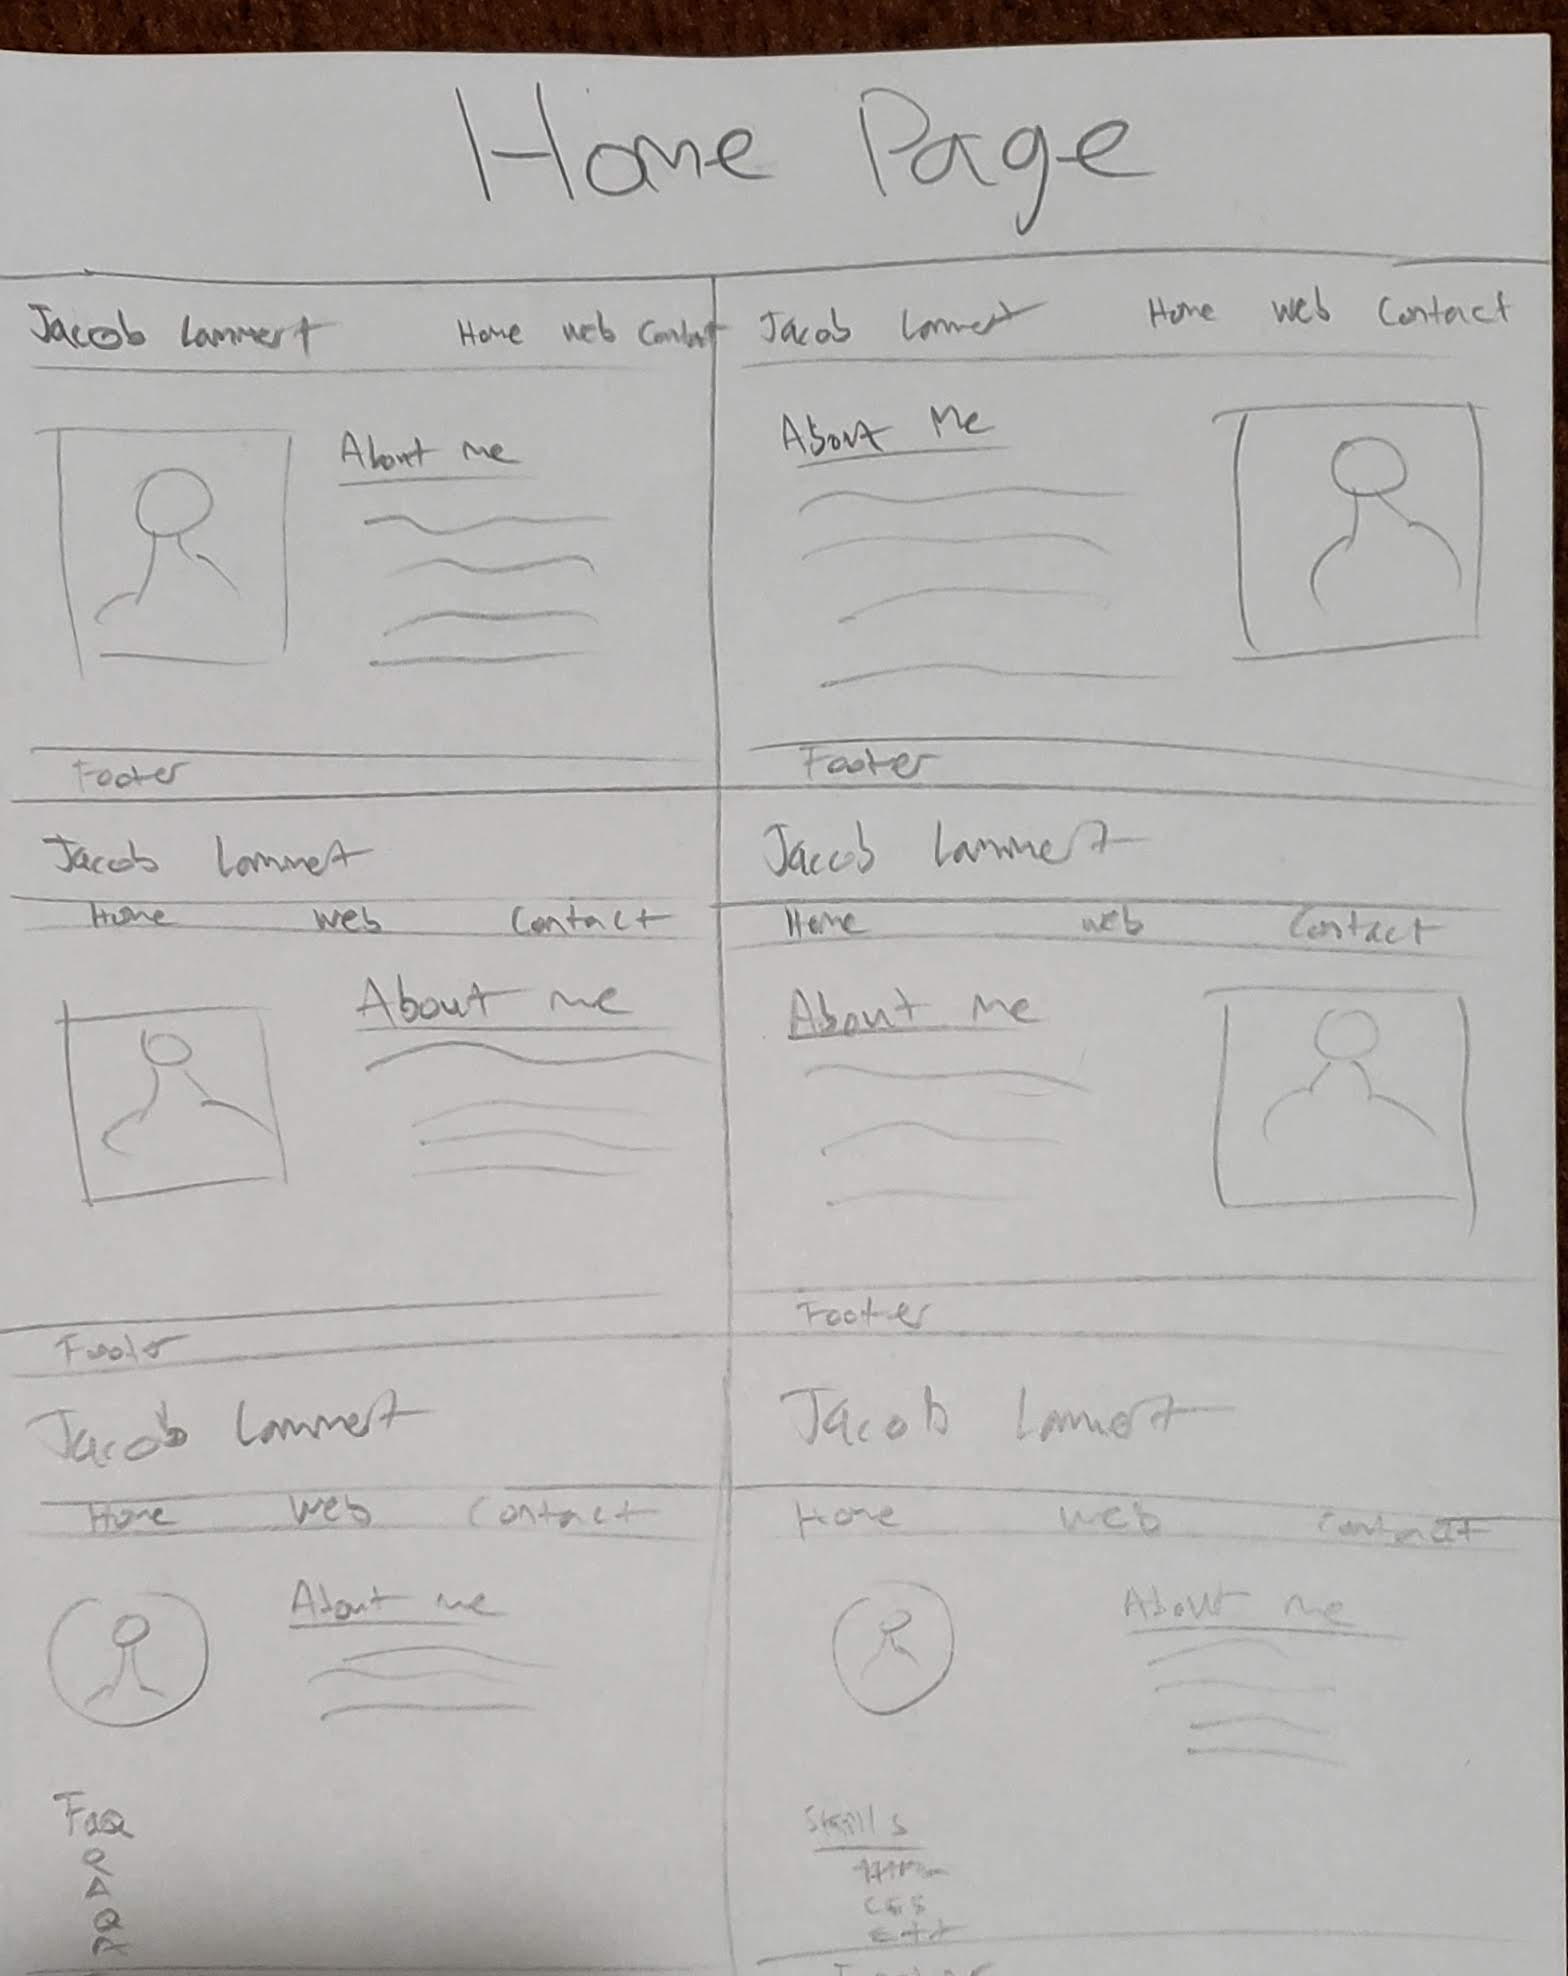 Home Page
Jacob Lammert Home Web Contact
About me
Footer
Jacob Lammert Home Web Contact
About Me
Footer
Jacob Lammert
Home Web Contact
About me
Footer
Jacob Lammert
Home Web Contact
About Me
Footer
Jacob Lammert
Home Web Contact
About me
FaQ
Q
A
Q
A
Jacob Lammert
Home Web Contact
About me
Skills
HTML
CSS
ETT
Footer